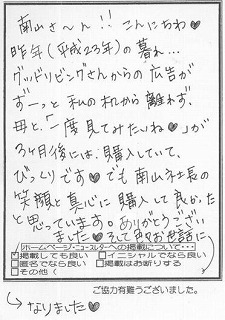 南山さ〜ん!! こんにちわ♥
昨年(平成23年)の暮れ...
グッドリビングさんからの広告が
ずーっと私の机から離れず、
母と、「一度見てみたいね♥」が
3ヶ月後には、購入していて、
びっくりです♥でも南山社長の
笑顔と真心に購入して良かった
と思っています。ありがとうござい
ました♥そして色々お世話に
ホームページ・ニュースレターへの掲載について・・・
☑掲載しても良い □イニシャルでなら良い
□匿名でなら良い □掲載はお断りする
□その他(
ご協力有難うございました。
↳なりました♥